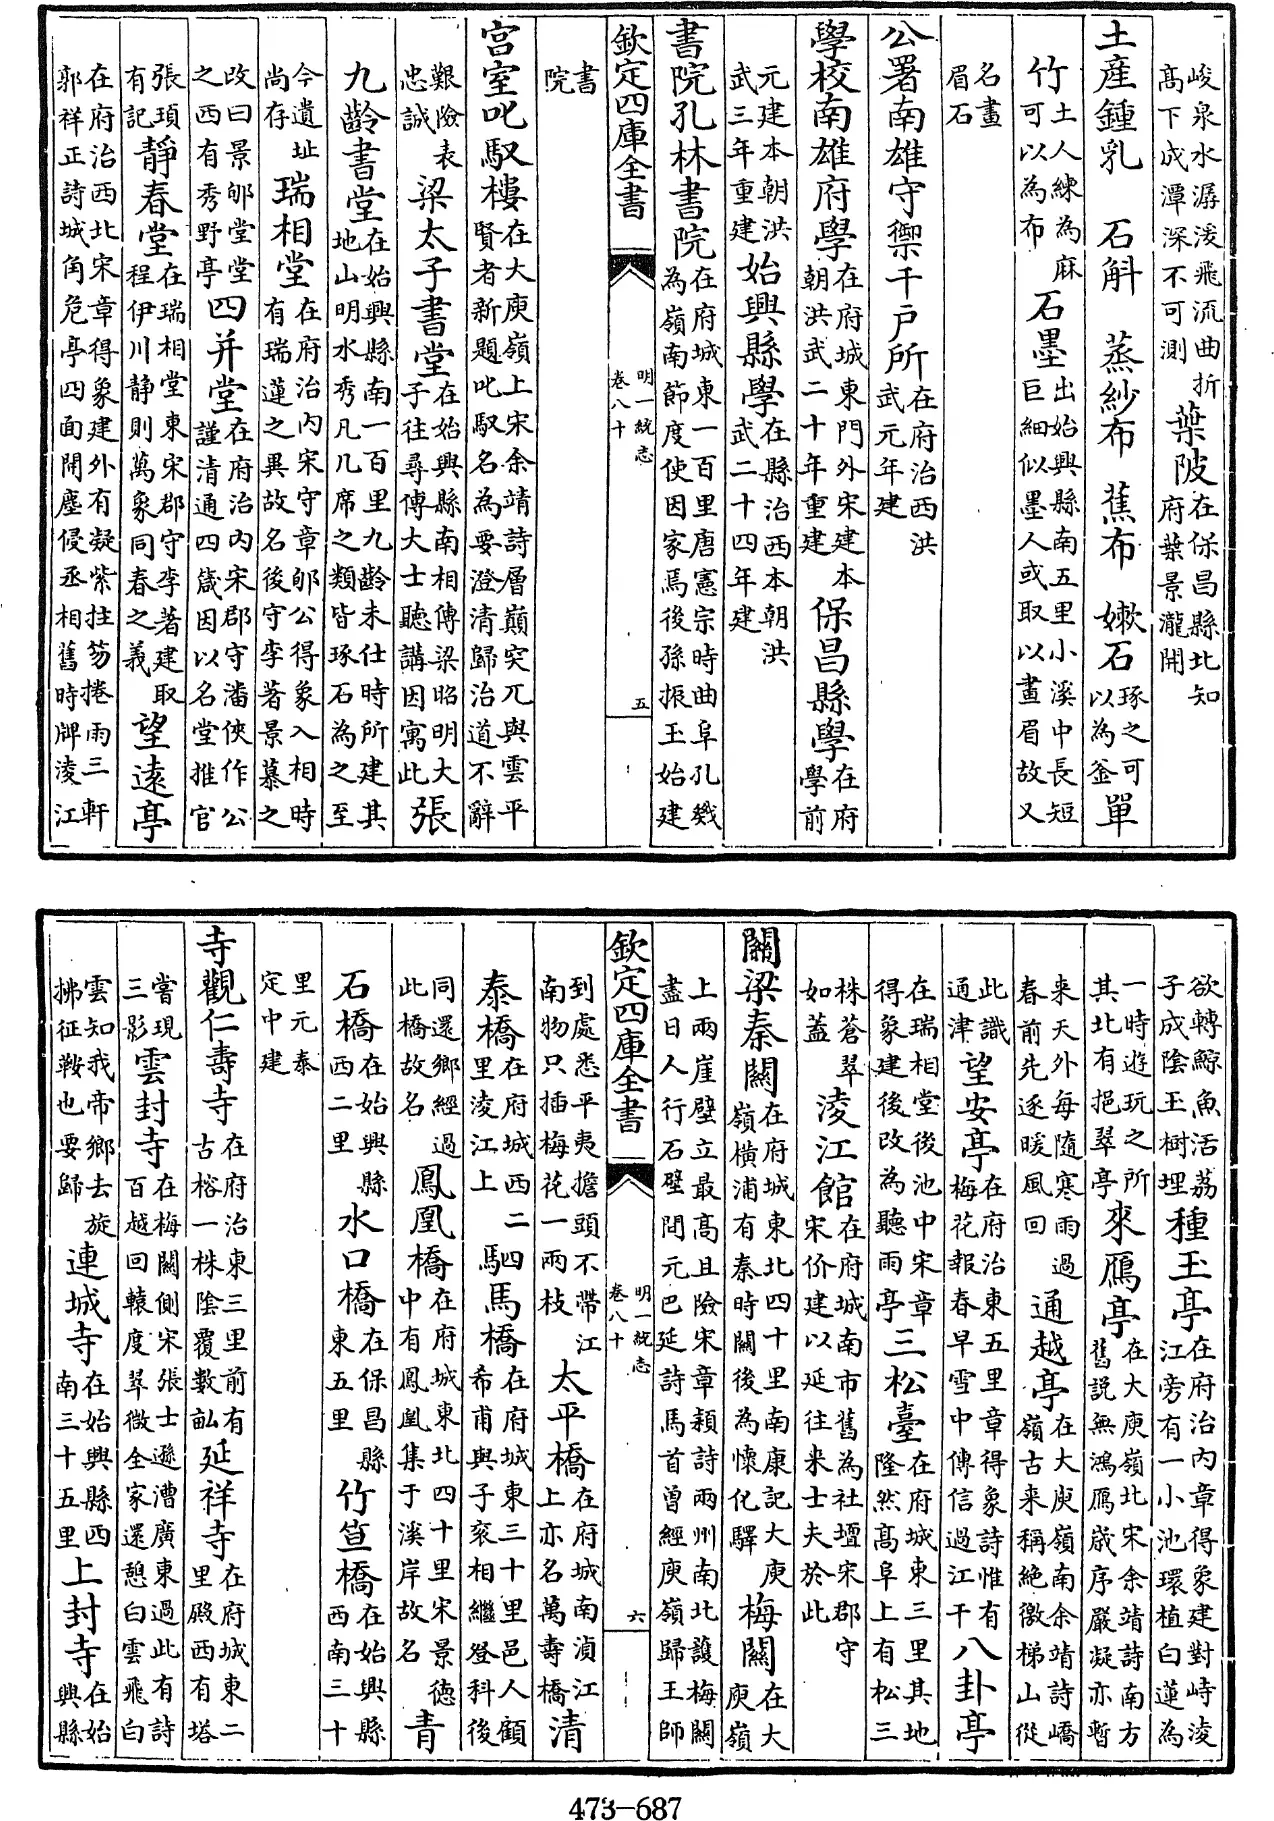 峻泉水潺湲飛流曲折高下成潭深不可測葉陂在保昌縣北知府葉景瀧開
土產鍾乳 石斛 蒸紗布 蕉布 嫩石琢之可以為釜單
竹土人練為麻可以為布石墨出始興縣南五里小溪中長短巨細似墨人或取以畫眉故又
名畫眉石
公署南雄守禦千戶所在府治西洪武元年建
學校南雄府學在府城東門外宋建本朝洪武二十年重建保昌縣學在府學前
元建本朝洪武三年重建始興縣學在縣治西本朝洪武二十四年建
書院孔林書院在府城東一百里唐憲宗時曲阜孔幾為嶺南節度使因家焉後孫振玉始建
欽定四庫全書 明一統志卷八十 五
書院
宮室叱馭樓在大庾嶺上宋余靖詩層巔突兀與雲平賢者新題叱馭名為要澄清歸治道不辭
艱險表忠誠梁太子書堂在始興縣南相傳梁昭明大子往尋傅大士聽講因寓此張
九齡書堂在始興縣南一百里九齡未仕時所建其地山明水秀凡几席之類皆琢石為之至
今遺址尚存瑞相堂在府治内宋守章郇公得象入相時有瑞蓮之異故名後守李著景慕之
改曰景郇堂堂之西有秀野亭四并堂在府治内宋郡守潘俠作公謹清通四箴因以名堂推官
張頊有記靜春堂在瑞相堂東宋郡守李著建取程伊川靜則萬象同春之義望遠亭
在府治西北宋章得象建外有凝紫拄笏捲雨三軒郭祥正詩城角危亭四面開塵侵丞相舊時牌淩江
欲轉鯨魚活荔子成陰玉樹埋種玉亭在府治内章得象建對峙淩江旁有一小池環植白蓮為
一時遊玩之所其北有挹翠亭來鴈亭在大庾嶺北宋余靖詩南方舊說無鴻鴈歲序嚴凝亦暫
来天外每隨寒雨過春前先逐暖風回通越亭在大庾嶺南余靖詩嶠嶺古来稱絶徼梯山從
此識通津望安亭在府治東五里章得象詩惟有梅花報春早雪中傳信過江干八卦亭
在瑞相堂後池中宋章得象建後改為聽雨亭三松臺在府城東三里其地隆然高阜上有松三
株蒼翠如蓋淩江館在府城南市舊為社壇宋郡守宋价建以延往来士夫於此
關梁秦關在府城東北四十里南康記大庾嶺橫浦有秦時關後為懷化驛梅關在大庾嶺
上兩崖壁立最高且險宋章穎詩兩州南北護梅關盡日人行石壁間元巴延詩馬首曾經庾嶺歸王師
欽定四庫全書 明一統志卷八十 六
到處悉平夷擔頭不帶江南物只插梅花一兩枝太平橋在府城南湞江上亦名萬壽橋清
泰橋在府城西二里淩江上駟馬橋在府城東三十里邑人顧希甫與子衮相繼登科後
同還鄉經過此橋故名鳳凰橋在府城東北四十里宋景德中有鳳凰集于溪岸故名青
石橋在始興縣西二里水口橋在保昌縣東五里竹笪橋在始興縣西南三十
里元泰定中建
寺觀仁壽寺在府治東三里前有古榕一株陰覆數畝延祥寺在府城東二里殿西有塔
嘗現三影雲封寺在梅關側宋張士遜漕廣東過此有詩百越回轅度翠微全家還憩白雲飛白
雲知我帝鄉去旋拂征鞍也要歸連城寺在始興縣西南三十五里上封寺在始興縣
473-687